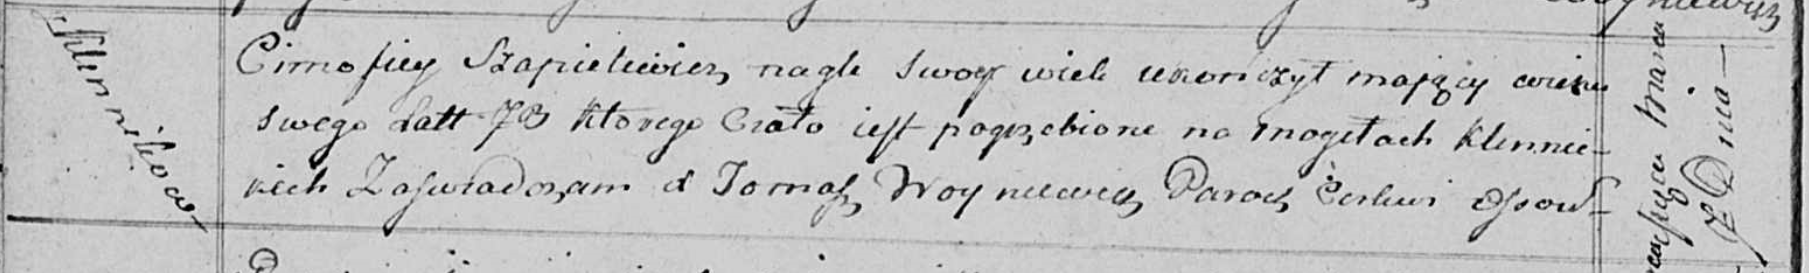 Klennikow
Cimofiey Szapielewicz nagle swoy wiek ukończył mający wieku
swego Latt 73 którego Ciało iest pogrzebione na mogiłach Klennic-
kich Zaswiadczam X Tomasz Woyniewicz Paroch Cerkwi
Miesiąca Marca
Dnia